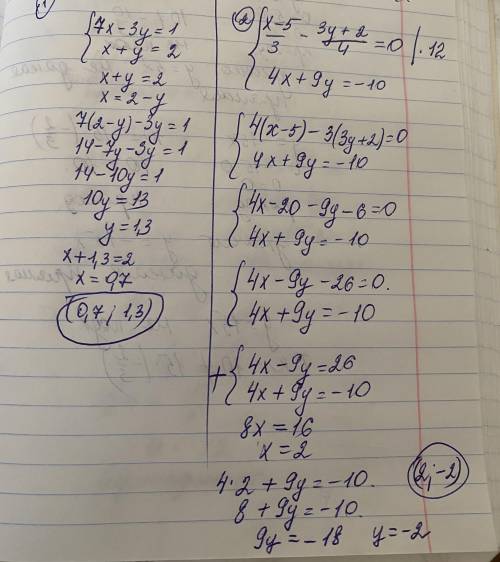 1
7x-3y=1
x+y=2
x+y=2
x=2-y
7(2-y)-3y=1
14-7y-3y=1
14-10y=1
10y=13
y=1,3
x+1,3=2
x=0,7
(0,7; 1,3)
2
(x-5)/3 - (3y+2)/4 =0 |·12
4x+9y=-10
4(x-5)-3(3y+2)=0
4x+9y=-10
4x-20-9y-6=0
4x+9y=-10
4x-9y-26=0.
4x+9y=-10
+ 4x-9y=26
4x+9y=-10
8x=16
x=2
4·2+9y=-10.
8+9y=-10.
9y=-18 y=-2
(2;-2)